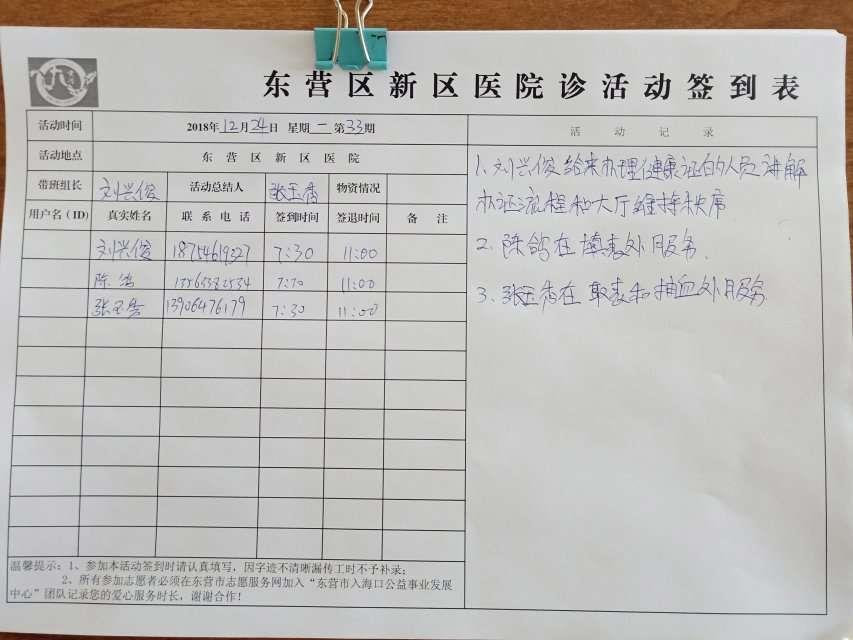 东营区新区医院诊活动签到表
活动时间 2018年12月24日 星期一 第33期 活动记录
活动地点 东营区新区医院
带班组长 刘兴俊 活动总结人 张玉香 物资情况
用户名（ID） 真实姓名 联系电话 签到时间 签退时间 备注
刘兴俊 18754619327 7:30 11:00
陈鸽 7:30 11:00
张玉香 13906476179 7:30 11:00
1、刘兴俊给来办理健康证的人员讲解
办证流程和大厅维持秩序
2、陈鸽在填表处服务.
3、张玉香在取表和抽血处服务
温馨提示：1、参加本活动签到时请认真填写，因字迹不清晰漏传工时不予补录；
2、所有参加志愿者必须在东营市志愿服务网加入“东营市入海口公益事业发展
中心”团队记录您的爱心服务时长，谢谢合作！